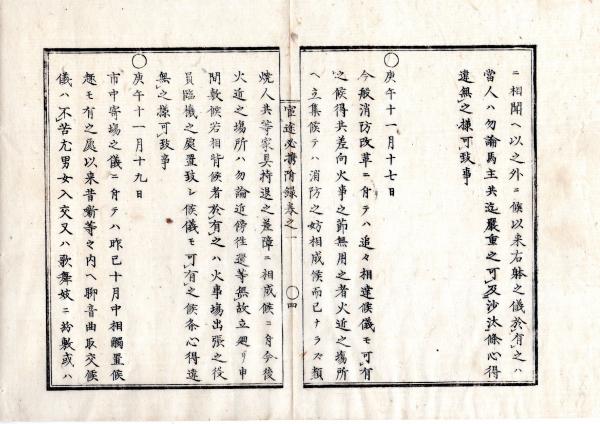 ニ相聞ヘ以之外ニ候以来右躰之儀於有之ハ
當人ハ勿論馬主共迄嚴重之可及沙汰條心得
違無之様可致事
〇庚午十一月十七日
今般消防改革ニ付テハ追々相達候儀モ可有
之候得共差向火事之節無用之者火近之塲所
ヘ立集候テハ消防之妨相成候而已ナラス類
官達必携附録巻之一
〇四
焼人共等家具持退之差障ニ相成候ニ付今後
火近之塲所ハ勿論近傍徃還等無故立廻リ申
間敷候若相背候者於有之ハ火事塲出張之役
員臨機之處置致シ候儀モ可有之候条心得違
無之様可致事
〇庚午十一月十九日
市中寄塲之儀ニ付テハ昨巳十月中相觸置候
趣モ有之處以来昔噺等之内ヘ聊音曲取交候
儀ハ不苦尤男女入交又ハ歌舞妓ニ紛敷或ハ